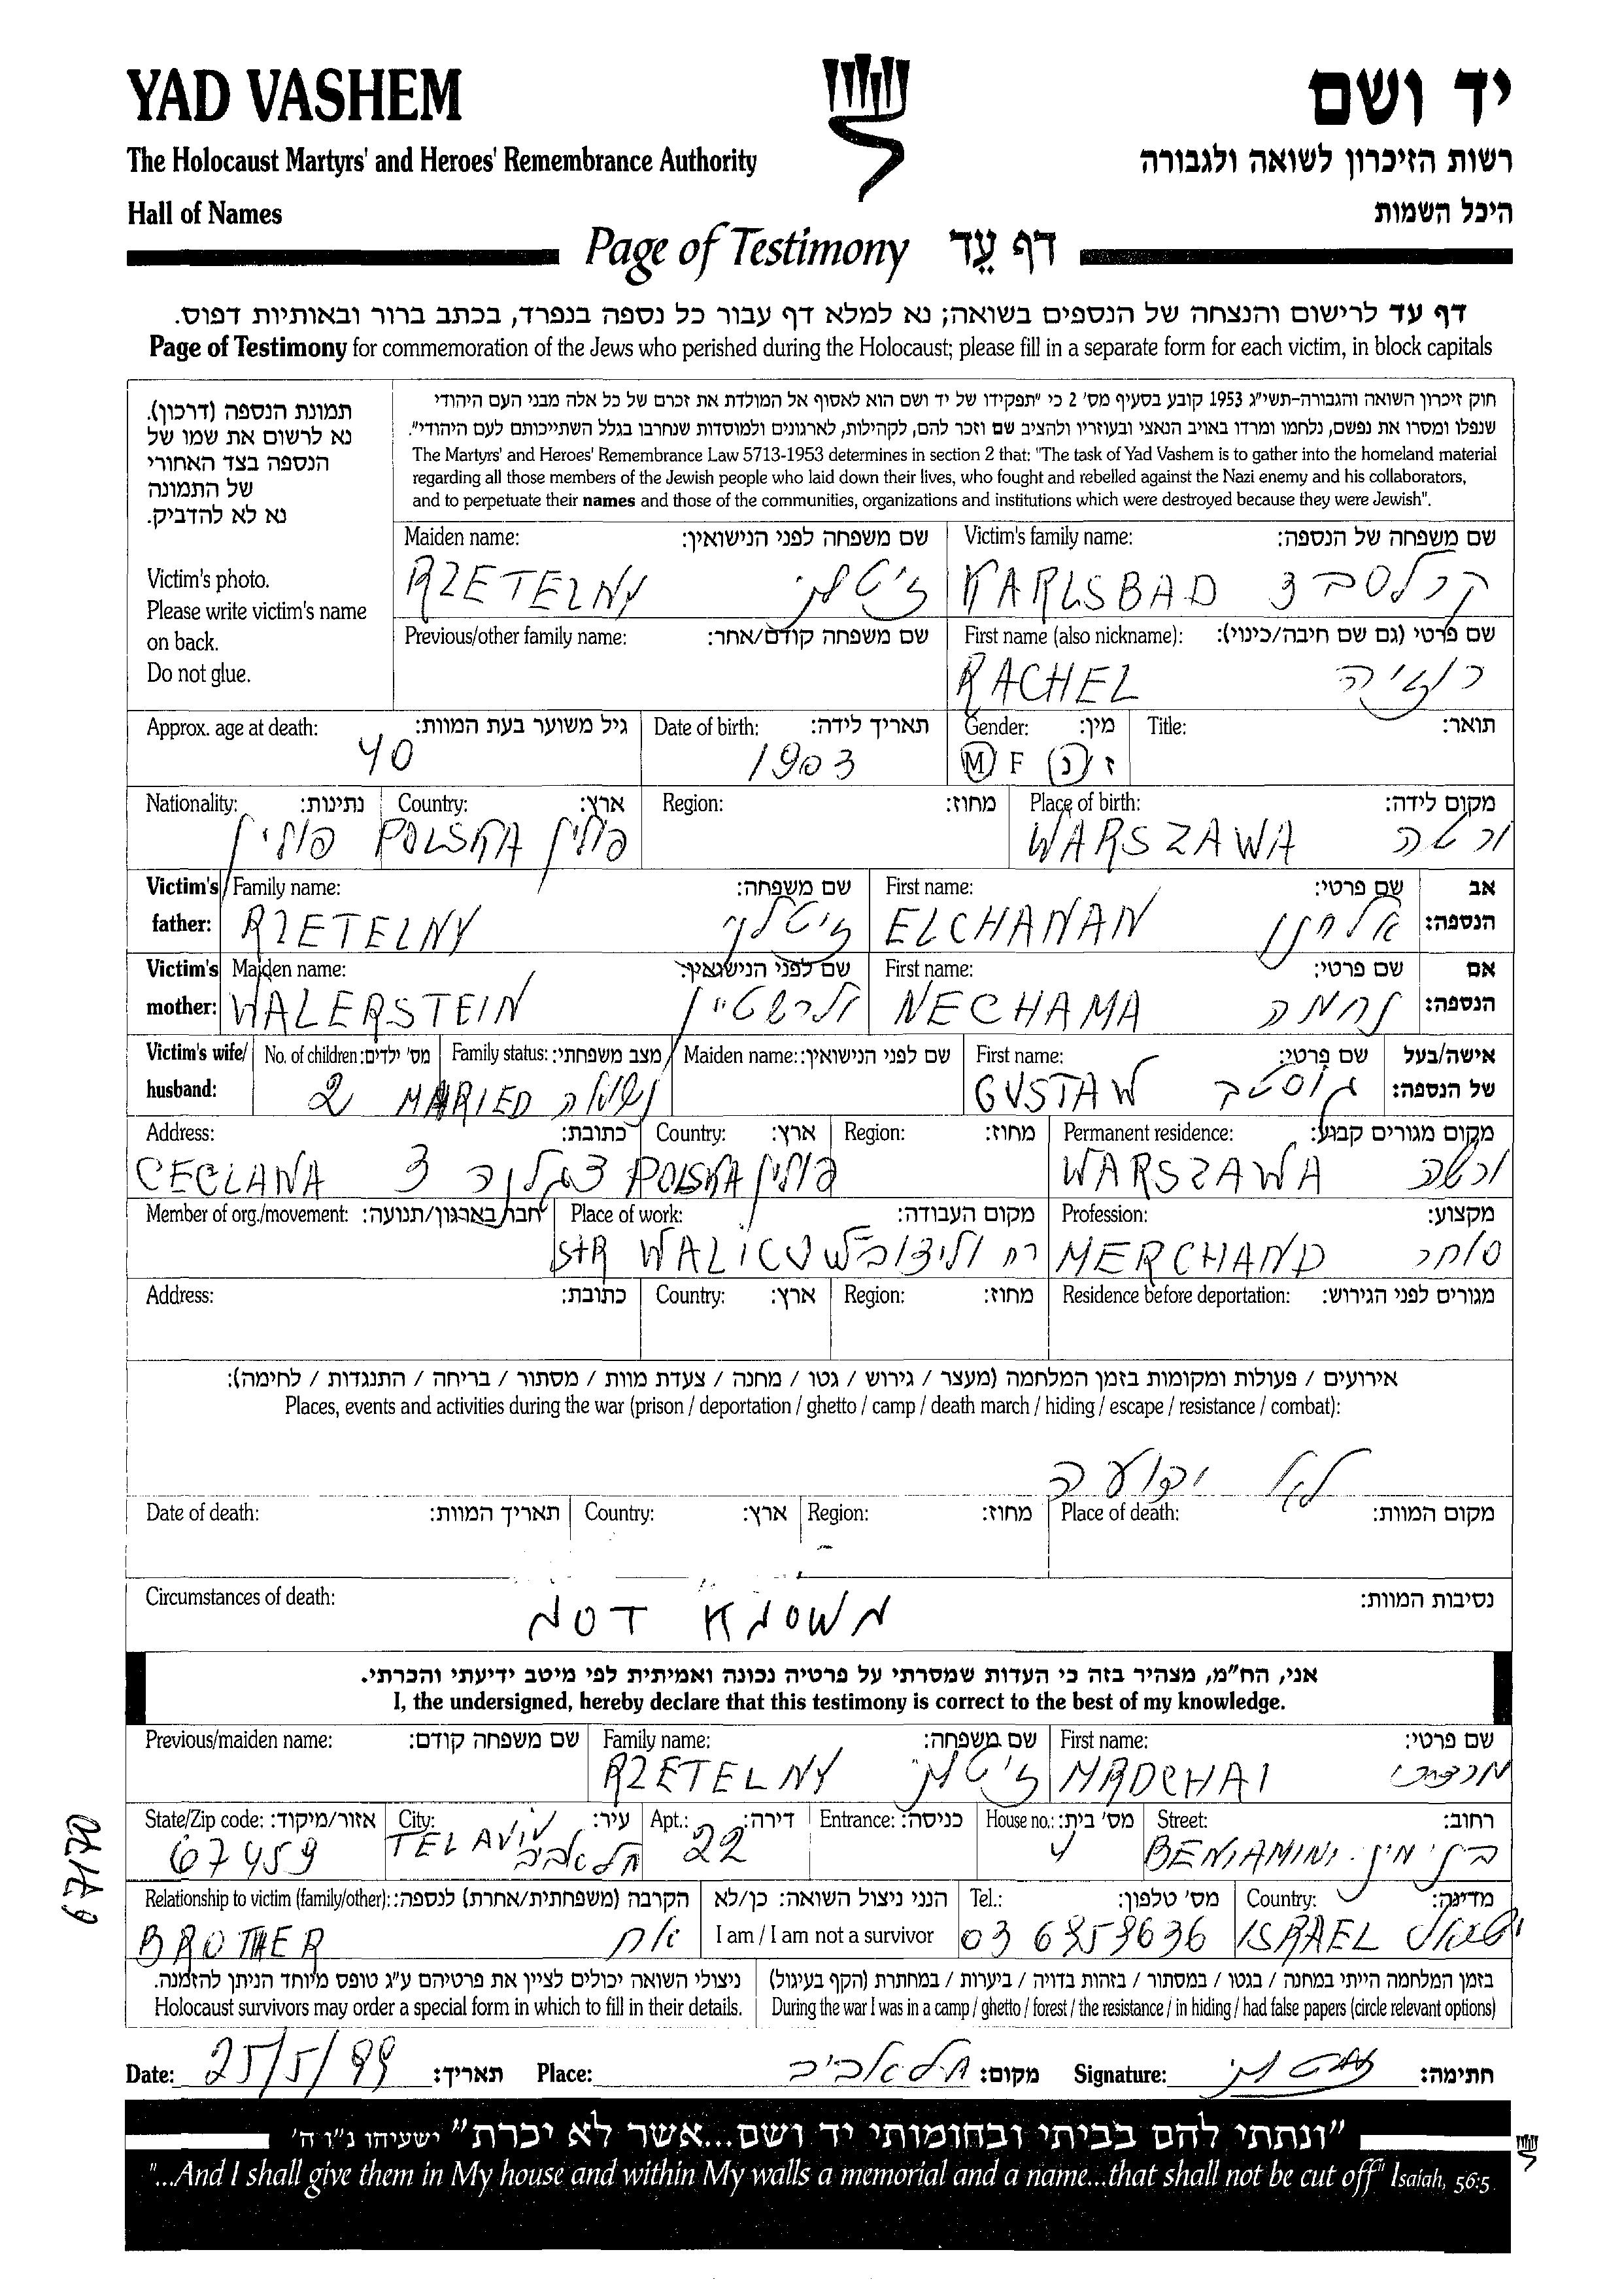 YAD VASHEM יד ושם
The Holocaust Martyrs' and Heroes' Remembrance Authority רשות הזיכרון לשואה ולגבורה
Hall of Names היכל השמות
Page of Testimony דף עֵד
דף עד לרישום והנצחה של הנספים בשואה; נא למלא דף עבור כל נספה בנפרד, בכתב ברור ובאותיות דפוס.
Page of Testimony for commemoration of the Jews who perished during the Holocaust; please fill in a separate form for each victim, in block capitals
תמונת הנספה (דרכון).
נא לרשום את שמו של
הנספה בצד האחורי
של התמונה
נא לא להדביק.
Victim's photo.
Please write victim's name
on back.
Do not glue.
חוק זיכרון השואה והגבורה-תשי"ג 1953 קובע בסעיף מס' 2 כי "תפקידו של יד ושם הוא לאסוף אל המולדת את זכרם של כל אלה מבני העם היהודי
שנפלו ומסרו את נפשם, נלחמו ומרדו באויב הנאצי ובעוזריו ולהציב שם וזכר להם, לקהילות, לארגונים ולמוסדות שנחרבו בגלל השתייכותם לעם היהודי".
The Martyrs' and Heroes' Remembrance Law 5713-1953 determines in section 2 that: "The task of Yad Vashem is to gather into the homeland material
regarding all those members of the Jewish people who laid down their lives, who fought and rebelled against the Nazi enemy and his collaborators,
and to perpetuate their names and those of the communities, organizations and institutions which were destroyed because they were Jewish".
Maiden name: שם משפחה לפני הנישואין: Victim's family name: שם משפחה של הנספה:
RZETELNY KARLSBAD קרלסבד
Previous/other family name: שם משפחה קודם/אחר: First name (also nickname): שם פרטי (גם שם חיבה/כינוי):
RACHEL רוז'יה
Approx. age at death: גיל משוער בעת המוות: Date of birth: תאריך לידה: Gender: מין: Title: תואר:
40 1903 M F נ ז
Nationality: נתינות: Country: ארץ: Region: מחוז: Place of birth: מקום לידה:
פולין POLSKA פולין WARSZAWA ורשה
Victim's father: Family name: שם משפחה: First name: שם פרטי: אב הנספה:
RZETELNY ז'טלני ELCHANAN אלחנן
Victim's mother: Maiden name: שם לפני הנישואין: First name: שם פרטי: אם הנספה:
WALERSTEIN ולרשטיין NECHAMA נחמה
Victim's wife/ husband: No. of children: מס' ילדים: Family status: מצב משפחתי: Maiden name: שם לפני הנישואין: First name: שם פרטי: אישה/בעל של הנספה:
2 MARIED נשואה GUSTAW גוסטב
Address: כתובת: Country: ארץ: Region: מחוז: Permanent residence: מקום מגורים קבוע:
CEGLANA 3 צגלנה POLSKA פולין WARSZAWA ורשה
Member of org./movement: חבר בארגון/תנועה: Place of work: מקום העבודה: Profession: מקצוע:
STR WALICOW רח MERCHAND סוחר
Address: כתובת: Country: ארץ: Region: מחוז: Residence before deportation: מגורים לפני הגירוש:
אירועים / פעולות ומקומות בזמן המלחמה (מעצר / גירוש / גטו / מחנה / צעדת מוות / מסתור / בריחה / התנגדות / לחימה):
Places, events and activities during the war (prison / deportation / ghetto / camp / death march / hiding / escape / resistance / combat):
לא ידוע
Date of death: תאריך המוות: Country: ארץ: Region: מחוז: Place of death: מקום המוות:
Circumstances of death: נסיבות המוות:
NOT KNOWN
אני, הח"מ, מצהיר בזה כי העדות שמסרתי על פרטיה נכונה ואמיתית לפי מיטב ידיעתי והכרתי.
I, the undersigned, hereby declare that this testimony is correct to the best of my knowledge.
Previous/maiden name: שם משפחה קודם: Family name: שם משפחה: First name: שם פרטי:
RZETELNY ז'טלני MRDCHAI מרדכי
State/Zip code: אזור/מיקוד: City: עיר: Apt.: דירה: Entrance: כניסה: House no.: מס' בית: Street: רחוב:
67459 TEL AVIV תל אביב 22 4 BENIAMINI בנימיני
Relationship to victim (family/other): הקרבה (משפחתית/אחרת) לנספה: הנני ניצול השואה: כן/לא Tel.: מס' טלפון: Country: מדינה:
BROTHER אח I am / I am not a survivor 03 6958636 ISRAEL ישראל
ניצולי השואה יכולים לציין את פרטיהם ע"ג טופס מיוחד הניתן להזמנה. בזמן המלחמה הייתי במחנה / בגטו / במסתור / בזהות בדויה / ביערות / במחתרת (הקף בעיגול)
Holocaust survivors may order a special form in which to fill in their details. During the war I was in a camp / ghetto / forest / the resistance / in hiding / had false papers (circle relevant options)
Date: 25/5/99 תאריך: Place: תל אביב מקום: Signature: חתימה:
"ונתתי להם בביתי ובחומותי יד ושם...אשר לא יכרת" ישעיהו נ"ו ה'
"...And I shall give them in My house and within My walls a memorial and a name...that shall not be cut off" Isaiah, 56:5